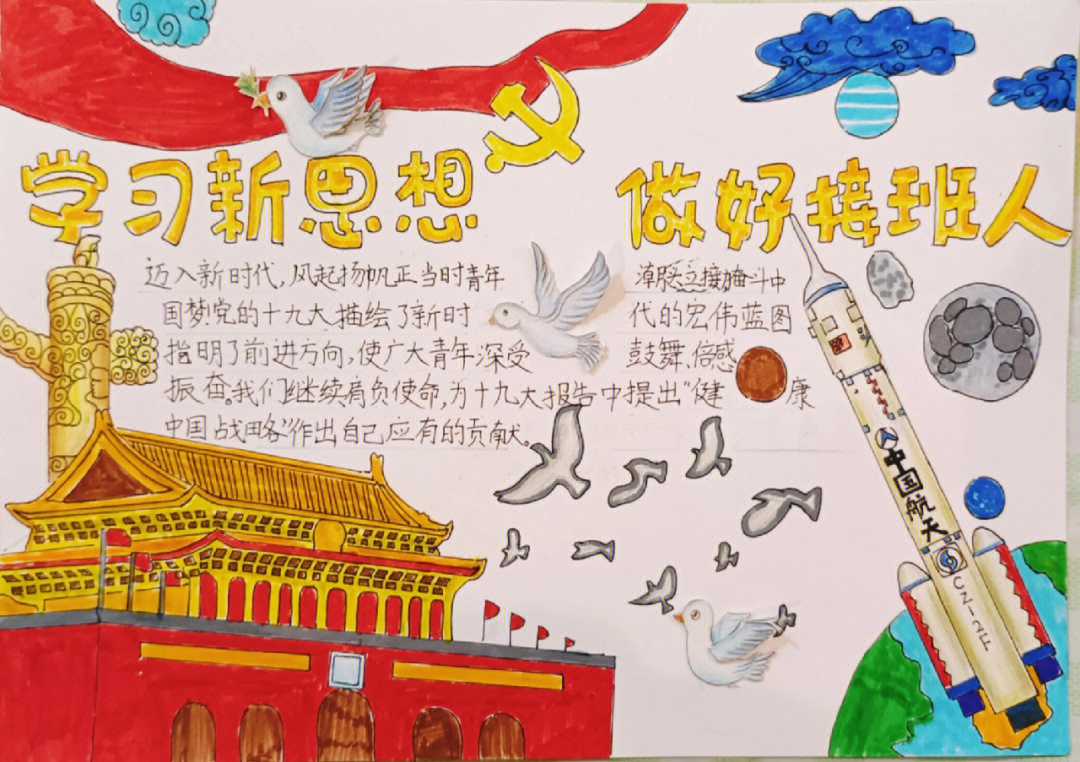 学习新思想 做好接班人
迈入新时代,风起扬帆正当时青年 接奋斗中
国梦,党的十九大描绘了新时 代的宏伟蓝图
指明了前进方向,使广大青年深受 鼓舞、倍感
振奋。我们继续肩负使命,为十九大报告中提出“健 康
中国战略”作出自己应有的贡献。
中国航天
CZ12F